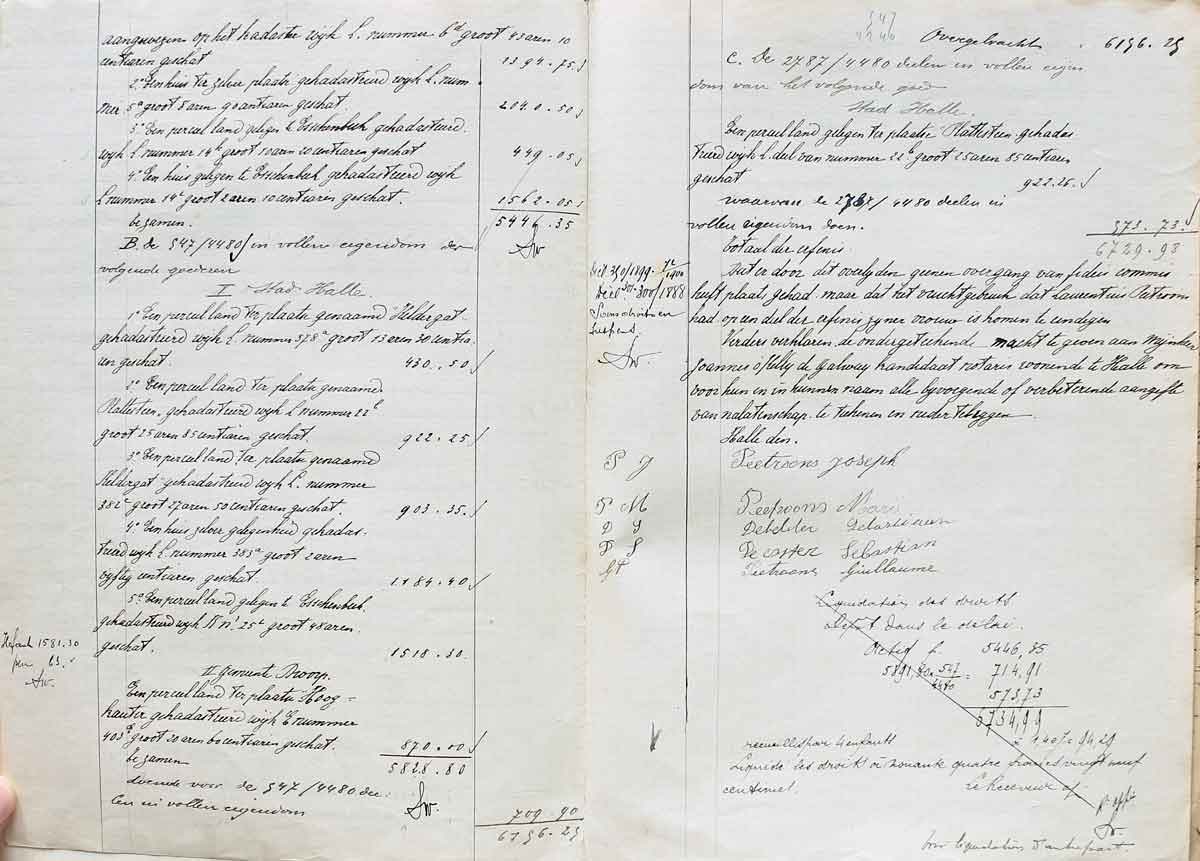 aangewezen op het kadaster wijk L. nummer 6d groot 43 aren 10
centiaren geschat 1394.75
2° Een huis ter zelver plaatse gekadastreerd wijk L. num-
mer 5a groot 5 aren 90 centiaren geschat. 2040.50
3° Een perceel land gelegen te Esschenbeek gekadastreerd
wijk L nummer 14k groot 10 aren 20 centiaren geschat 449.05
4° Een huis gelegen te Esschenbeek gekadastreerd wijk
L nummer 14l groot 2 aren 10 centiaren geschat. 1562.05
bezamen. 5446.35
B. de 547/4480 in vollen eigendom der
volgende goederen
I Stad Halle.
1° Een perceel land ter plaatse genaamd Heldergat
gekadastreerd wijk L nummer 378a groot 13 aren 30 centia-
ren geschat. 430.50
2° Een perceel land ter plaatse genaamd
Hattesteen, gekadastreerd wijk L nummer 22b
groot 25 aren 85 centiaren geschat. 922.25
3° Een perceel land ter plaatse genaamd
Heldergat gekadastreerd wijk L. nummer
382c groot 27 aren 50 centiaren geschat. 903.35
4° Een huis zelver gelegenheid gekadas-
treerd wijk L. nummer 385a groot 2 aren
vyftig centiaren geschat. 1184.40
5° Een perceel land gelegen te Esschenbeek
gekadastreerd wijk n° 25d groot 48 aren
geschat. 1518.30
1581.30
63.
II Gemeent
Een perceel land ter plaatse Hoog-
hauter gekadastreerd wijk E nummer
403 groot 20 aren 60 centiaren geschat. 870.00
bezamen 5828.80
doende voor de 547/4480 dee-
len in vollen eigendom 709.90
6156.25
547
Overgebracht 6156.25
C. De 2787/4480 deelen in vollen eigen
dom van het volgende goed
Stad Halle.
Een perceel land gelegen ter plaatse Hattesteen gekadas
treerd wijk L. deel van nummer 22b groot 25 aren 85 centiaren
geschat 922.25
waarvan de 2787/4480 deelen in
vollen eigendom doen. 573.73
Totaal der erfenis 6729.98
Dat er door dit overlyden geenen overgang van fideis commis
heeft plaats gehad maar dat het vruchtgebruik dat Laurentius Petroons
had op een deel der erfenis zyner vrouw is komen te eindigen
300/1888
Verders verklaren de ondergeteekende macht te geven aan Mijnheer
Joannes O'Kelly de Galway kandidaat notaris wonende te Halle om
voor hun en in hunnen naam alle byvoegende of verbeterende aangifte
van nalatenschap te teekenen en neder te leggen
Halle den.
P J Peetroons Joseph
P M Peetroons Marie
D
D S De caster Sebastian
G P Pietroons Guillaume
Liquidation des droits
Dépot dans le délai
Actif f. 5446,85
547/4480 = 714,91
573,73
6734,99
à 1.40% = 94,29
recueillis par 4 enfants
Liquidé les droits à nonante quatre francs vingt neuf
centimes. Le Receveur